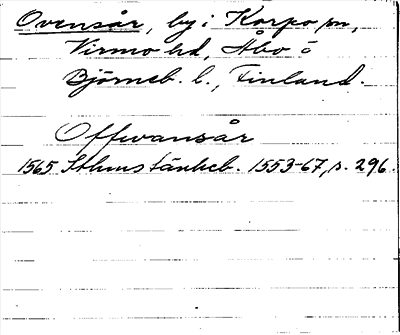 Ovensår, by i Korpo sn,
Virmo hd, Åbo o
Björneb. l., Finland.
Offwansår
1565 Sthms tänkeb. 1553-67, s. 296.